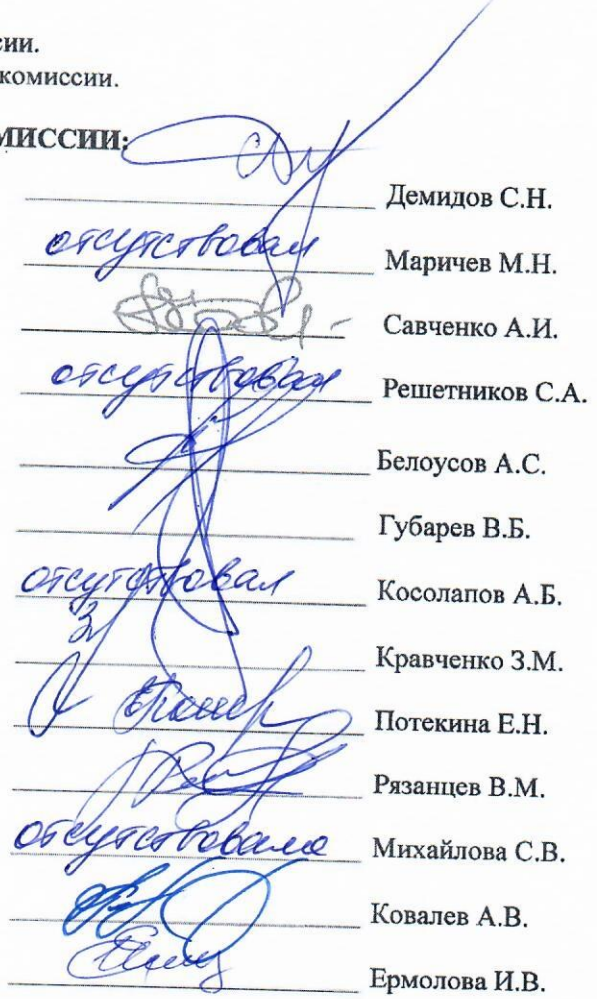 сии.
комиссии.
МИССИИ:
Демидов С.Н.
отсутствовал Маричев М.Н.
Савченко А.И.
отсутствовал Решетников С.А.
Белоусов А.С.
Губарев В.Б.
отсутствовал Косолапов А.Б.
Кравченко З.М.
Потекина Е.Н.
Рязанцев В.М.
отсутствовала Михайлова С.В.
Ковалев А.В.
Ермолова И.В.